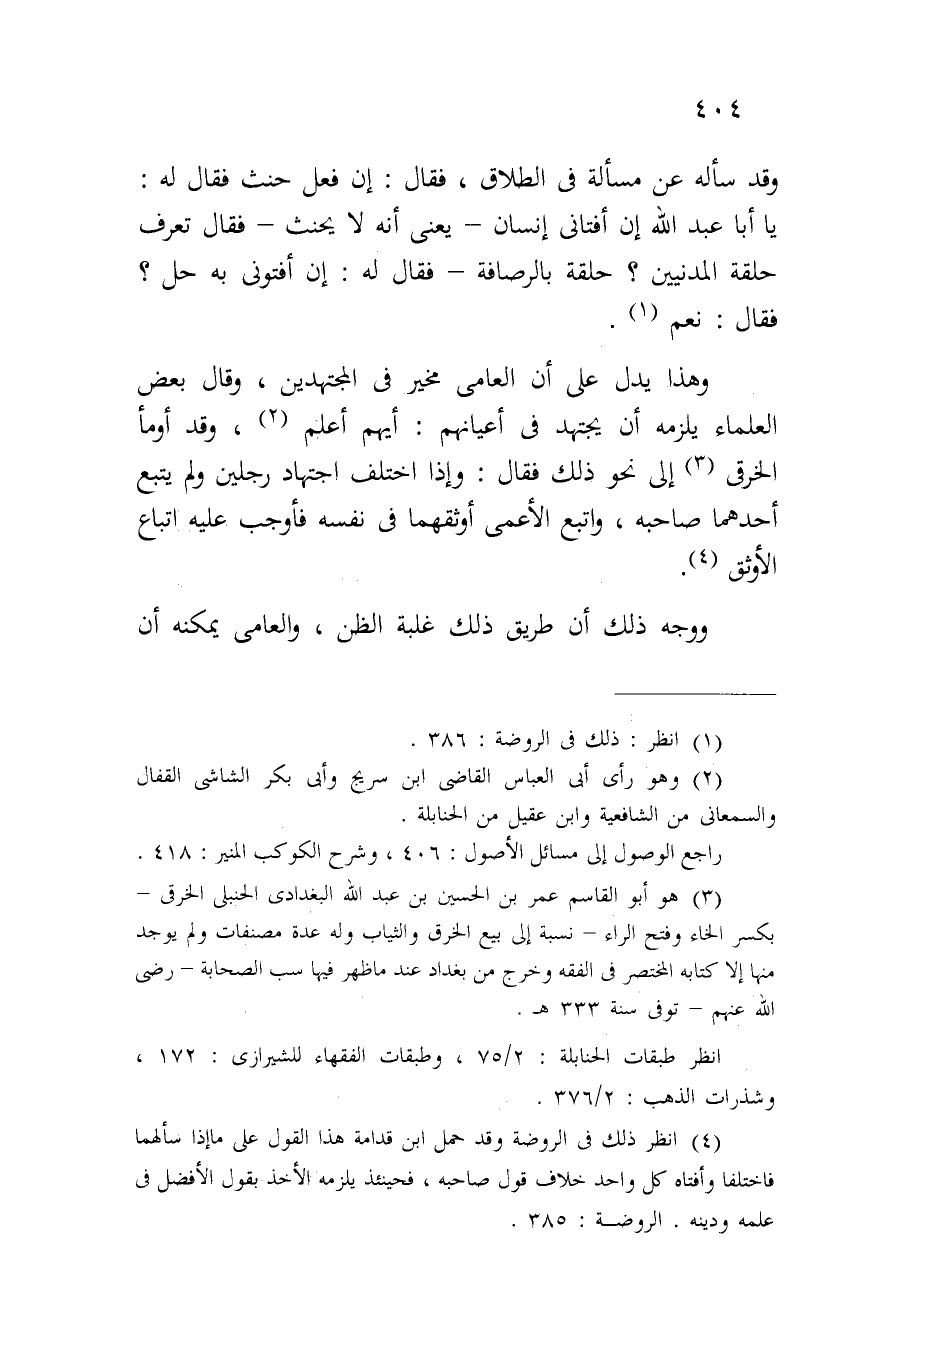 ٤٠٤
وقد سأله عن مسألة فى الطلاق ، فقال : إن فعل حنث فقال له :
يا أبا عبد الله إن أفتانى إنسان – يعنى أنه لا يحنث – فقال تعرف
حلقة المدنيين ؟ حلقة بالرصافة – فقال له : إن أفتونى به حل ؟
فقال : نعم (١) .
وهذا يدل على أن العامى مخير فى المجتهدين ، وقال بعض
العلماء يلزمه أن يجتهد فى أعيانهم : أيهم أعلم (٢) ، وقد أومأ
الخرقى (٣) إلى نحو ذلك فقال : وإذا اختلف اجتهاد رجلين ولم يتبع
أحدهما صاحبه ، واتبع الأعمى أوثقهما فى نفسه فأوجب عليه اتباع
الأوثق (٤).
ووجه ذلك أن طريق ذلك غلبة الظن ، والعامى يمكنه أن
(١) انظر : ذلك فى الروضة : ٣٨٦ .
(٢) وهو رأى أبى العباس القاضى ابن سريج وأبى بكر الشاشى القفال
والسمعانى من الشافعية وابن عقيل من الحنابلة .
راجع الوصول إلى مسائل الأصول : ٤٠٦ ، وشرح الكوكب المنير : ٤١٨ .
(٣) هو أبو القاسم عمر بن الحسين بن عبد الله البغدادى الحنبلى الخرقى –
بكسر الخاء وفتح الراء – نسبة إلى بيع الخرق والثياب وله عدة مصنفات ولم يوجد
منها إلا كتابه المختصر فى الفقه وخرج من بغداد عند ماظهر فيها سب الصحابة – رضى
الله عنهم – توفى سنة ٣٣٣ هـ .
انظر طبقات الحنابلة : ٧٥/٢ ، وطبقات الفقهاء للشيرازى : ١٧٢ ،
وشذرات الذهب : ٣٧٦/٢ .
(٤) انظر ذلك فى الروضة وقد حمل ابن قدامة هذا القول على ماإذا سألهما
فاختلفا وأفتاه كل واحد خلاف قول صاحبه ، فحينئذ يلزمه الأخذ بقول الأفضل فى
علمه ودينه . الروضــة : ٣٨٥ .